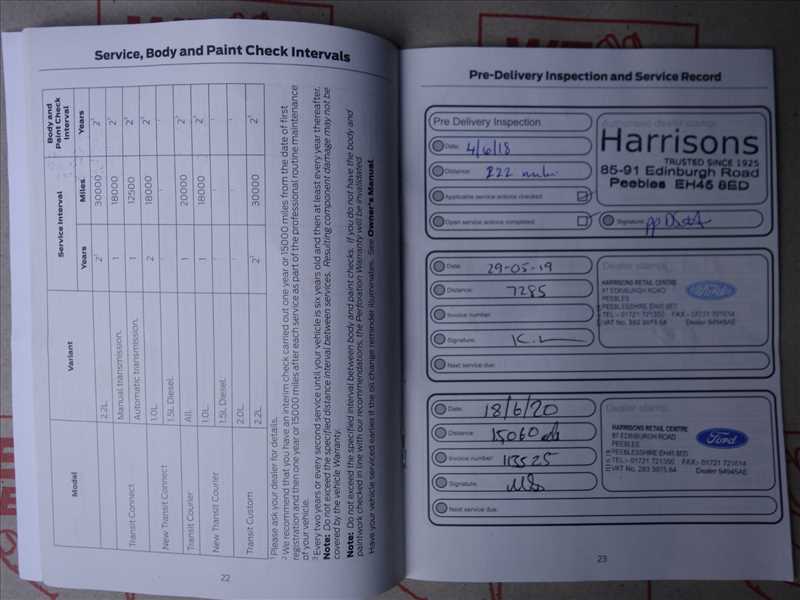 Service, Body and Paint Check Intervals
Model
Variant
Service Interval
Body and Paint Check Interval
Years
Miles
Years
2.2L
2¹
30000
2¹
Transit Connect
Manual transmission.
1
18000
2¹
Automatic transmission.
1
12500
2¹
New Transit Connect
1.0L
2
18000
2¹
1.5L Diesel
Transit Courier
All.
1
20000
2¹
New Transit Courier
1.0L
1
18000
2¹
1.5L Diesel
Transit Custom
2.0L
2.2L
2¹
30000
2¹
¹ Please ask your dealer for details.
² We recommend that you have an interim check carried out one year or 15000 miles from the date of first
registration and then one year or 15000 miles after each service as part of the professional routine maintenance
of your vehicle.
³ Every two years or every second service until your vehicle is six years old and then at least every year thereafter.
Note: Do not exceed the specified distance interval between services. Resulting component damage may not be
covered by the vehicle Warranty.
Note: Do not exceed the specified interval between body and paint checks. If you do not have the body and
paintwork checked in line with our recommendations, the Perforation Warranty will be invalidated.
Have your vehicle serviced earlier if the oil change reminder illuminates. See Owner's Manual.
22
Pre-Delivery Inspection and Service Record
Pre Delivery Inspection
Date: 4/6/18
Distance: 222 miles
Applicable service actions checked:
Open service actions completed:
Harrisons
TRUSTED SINCE 1925
85-91 Edinburgh Road
Peebles EH45 8ED
Signature: pp
Date: 29-05-19
Distance: 7285
Invoice number:
Signature:
Next service due:
Dealer stamp:
HARRISONS RETAIL CENTRE
87 EDINBURGH ROAD
PEEBLES
PEEBLESSHIRE EH45 8ED
TEL - 01721 721350 FAX - 01721 721614
VAT No. 283 3975 64 Dealer 94945AE
Ford
Date: 18/6/20
Distance: 15060
Invoice number: 113525
Signature:
Next service due:
Dealer stamp:
HARRISONS RETAIL CENTRE
87 EDINBURGH ROAD
PEEBLES
PEEBLESSHIRE EH45 8ED
TEL - 01721 721350 FAX - 01721 721614
VAT No. 283 3975 64 Dealer 94945AE
Ford
23